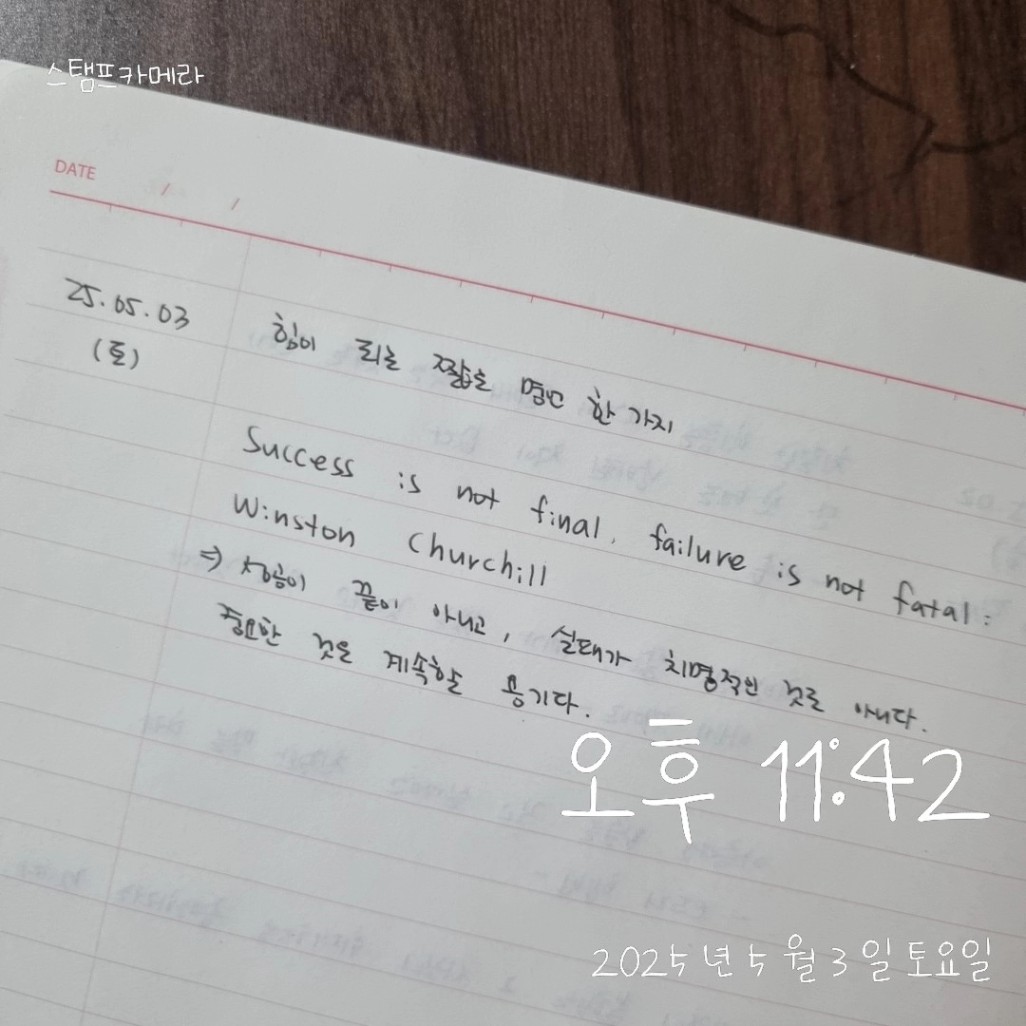 스탬프카메라
DATE / /
25.05.03
(토)
힘이 되는 짧은 명언 한 가지
Success is not final, failure is not fatal:
Winston Churchill
⇒ 성공이 끝이 아니고, 실패가 치명적인 것도 아니다.
중요한 것은 계속하는 용기다.
오후 11:42
2025년 5월 3일 토요일